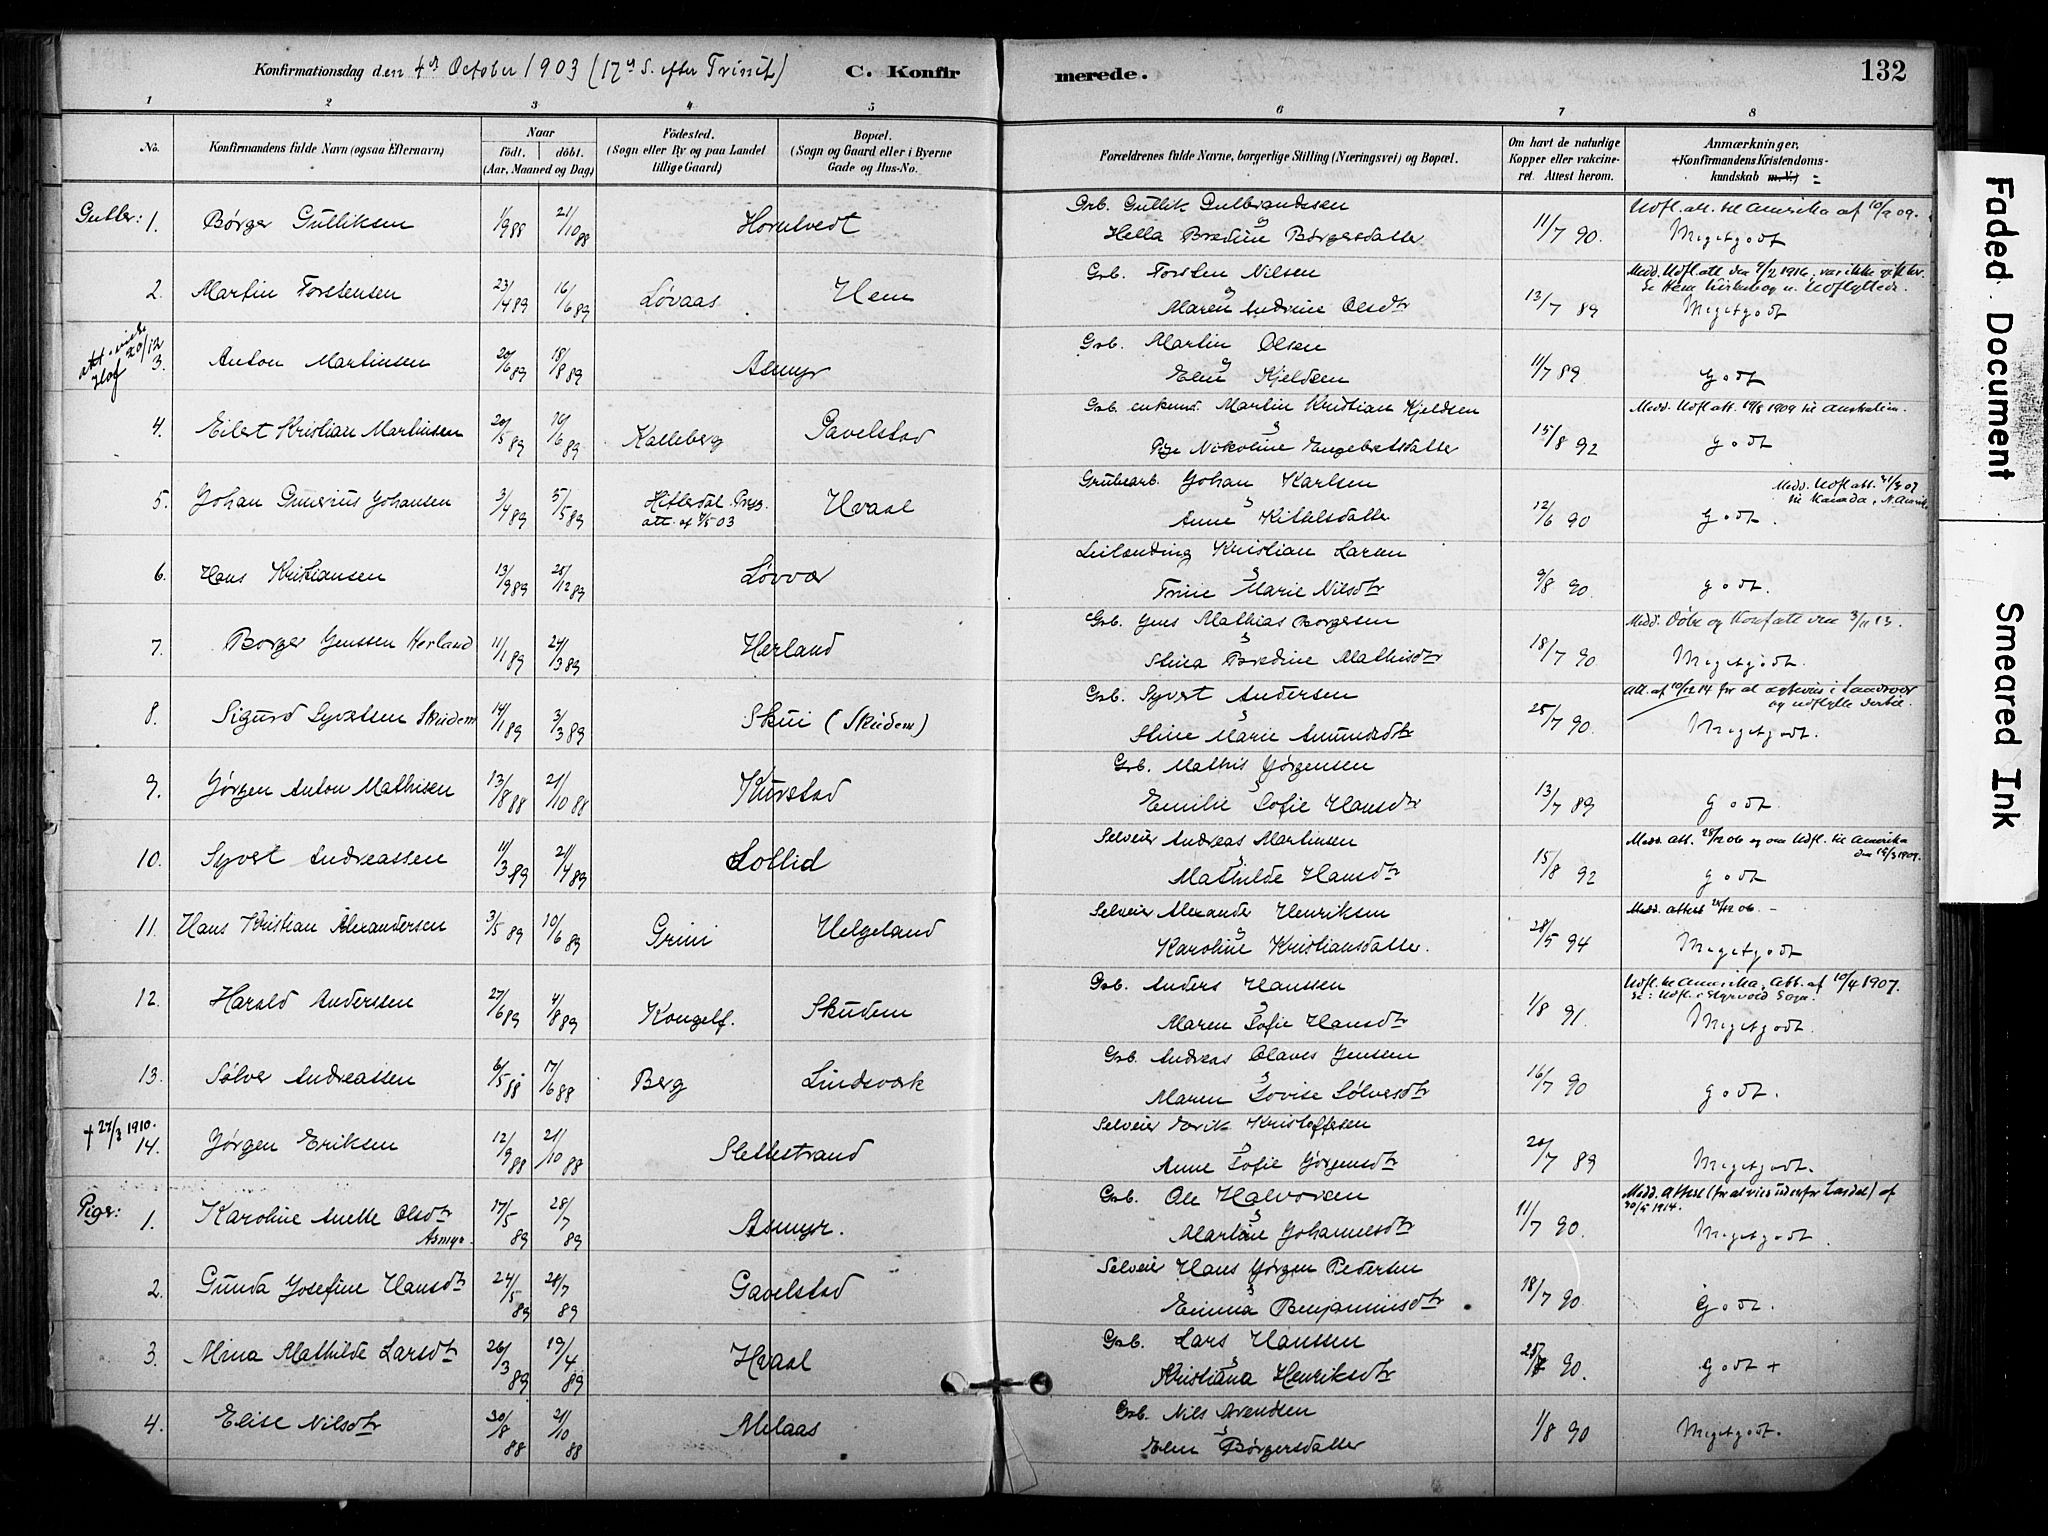 Konfirmationsdag den 4de October 1903 (17de S. efter Trinit.) C. Konfirmerede. 132
1 2 3 4 5 6 7 8
No. Konfirmandens fulde Navn (ogsaa Efternavn) Naar født. døbt. (Aar, Maaned og Dag) Fødested. (Sogn eller By og paa Landet tillige Gaard) Bopæl. (Sogn og Gaard eller i Byerne Gade og Hus-No. Forældrenes fulde Navne, borgerlige Stilling (Næringsvei) og Bopæl. Om havt de naturlige Kopper eller vakcineret. Attest herom. Anmærkninger, +Konfirmandens Kristendomskundskab m.V.)
Gutter: 1. Børger Gulliksen 1/9 88 21/10 88 Hornlvedt Grb. Gullik Gulbrandsen
og Hella Bredine Børgersdatter 11/7 90. Udfl. att. til Amerika af 10/2 09.
Megetgodt
2. Martin Torstensen 23/4 89 16/6 89 Løvaas Hem Grb. Torsten Nilsen
og Maren Andrine Olsdtr 13/7 89 Medd. Udfl. att. den 9/2 1916, var ikke gift her.
Se Hem Kirkebog u. Udflyttede.
Megetgodt
att. vielse 20/12 Hof
3. Anton Martinsen 20/6 89 18/8 89 Asmyr Grb. Martin Olsen
og Elen Kjeldsen 11/7 89 Godt
4. Eilert Kristian Martinsen 20/5 89 10/6 89 Kalleberg Gavelstad Grb. enkemd. Martin Kristian Kjeldsen
og Pge Nikoline Engebretsdatter 15/8 92 Medd. Udfl. att. 19/8 1909 til Australien.
godt
5. Johan Gunerius Johansen 3/4 89 5/5 89 Hitterdal Prgj. att. af 7/5 03 Hvaal Grubearb. Johan Karlsen
og Anne Kittelsdatter 12/6 90 Medd. Udfl. att. 21/3 07
til Kanada, N. Amerik
godt.
6. Hans Kristiansen 13/9 89 25/12 89 Løvvær Leilænding Kristian Larsen
og Trine Marie Nilsdtr 9/8 90. godt.
7. Borger Jenssen Herland 11/1 89 24/3 89 Herland Grb. Jens Mathias Borgersen
og Stina Bredine Mathisdtr 18/7 90 Medd. Døbe og Konf att den 3/11 13.
Megetgodt.
8. Sigurd Syvertsen Skudem 14/1 89 3/3 89 Skui (Skudem) Grb. Syvert Andersen
og Stine Marie Amundsdtr 25/7 90. Att. af 10/12 14 for at ægtevies i Sandsvær
og udflytte dertil.
Megetgodt.
9. Jørgen Anton Mathisen 13/8 88 21/10 88 Kurstad Grb. Mathis Jørgensen
og Emilie Sofie Hansdtr 13/7 89 godt.
10. Syvert Andreassen 11/3 89 21/4 89 Sollid Selveier Andreas Martinsen
og Mathilde Hansdtr 15/8 92 Medd. att. 28/12 06 og om Udfl. til Amerika
den 15/3 1909.
godt
11. Hans Kristian Alexandersen 3/5 89 10/6 89 Grini Helgeland Selveier Alexander Henriksen
og Karoline Kristiansdatter. 28/5 94 Medd. attest 28/12 06. -
Megetgodt
12. Harald Andersen 27/6 89 4/8 89 Kongelf. Skudem Grb. Anders Hanssen
og Maren Sofie Hansdtr 1/8 91. Udfl. til Amerika, Att. af 10/4 1907.
Se: Udfl. i Styrvold Sogn.
Megetgodt.
13. Sølver Andreassen 6/5 88 17/6 88 Berg Lindsværk Grb. Andreas Olaves Jensen
og Maren Lovise Sølvesdtr 16/7 90 godt.
+ 27/3 1910.
14. Jørgen Eriksen 12/9 88 21/10 88 Slettestrand Selveier Erik Kristoffersen
og Anne Sofie Jørgensdtr 20/7 89 Megetgodt.
Piger: 1. Karoline Anette Olsdtr Asmyr. 17/5 89 28/7 89 Asmyr. Grb. Ole Halvorsen
og Martine Johannesdtr 11/7 90. Medd. Attest (for at vies udenfor Landet) af
30/5 1914.
Megetgodt.
2. Gunda Josefine Hansdtr 24/5 89 28/7 89 Gavelstad Selveier Hans Jørgen Pedersen
og Emma Benjaminsdtr 18/7 90. Godt.
3. Mina Mathilde Larsdtr 26/3 89 19/4 89 Hvaal Grb. Lars Hanssen
og Kristiana Henriksdtr 25/7 90. Godt +
4. Elise Nilsdtr 30/8 88 21/10 88 Melaas Grb. Nils Arendsen
og Elen Børgersdatter 1/8 90 Megetgodt.
Faded Document
Smeared Ink